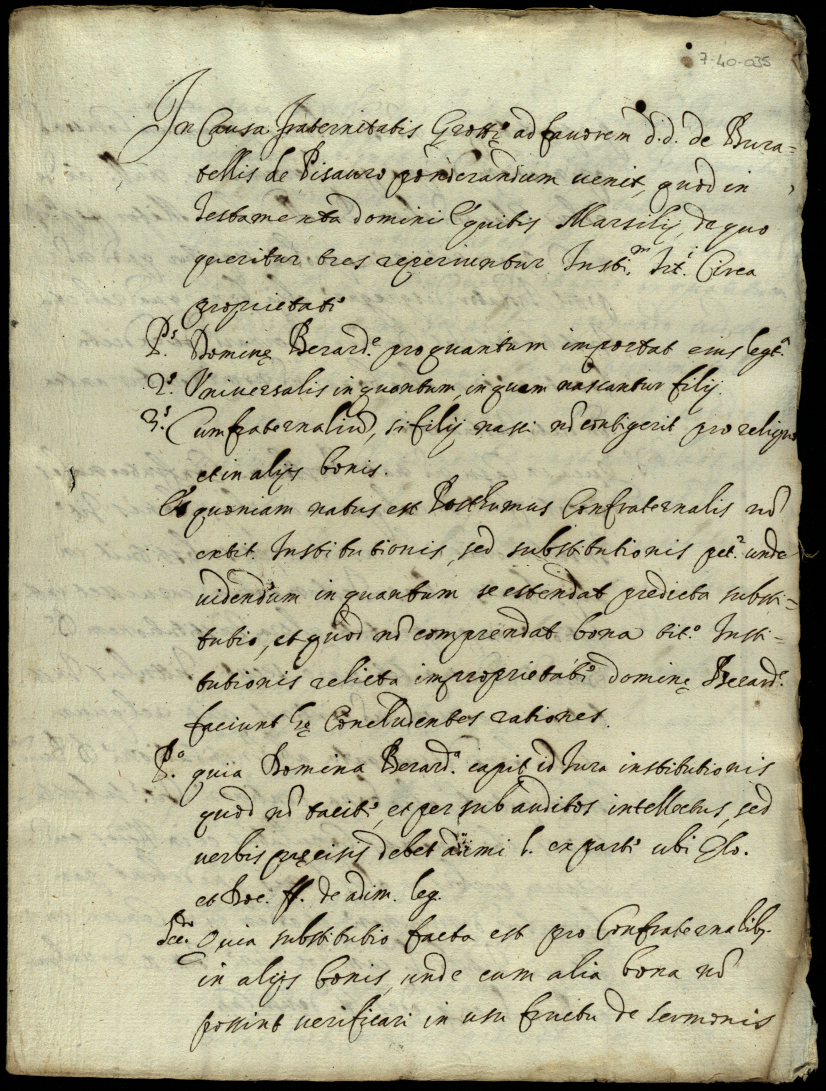 7-40-035
In Causa fraternitatis Grotti ad fauorem d.d. de Bura=
tellis de Pisauro ponderandum uenit, quod in
testamento domini Equitis Marsilij, de quo
queritur tres reperiuntur Insti.m Circa
proprietati
P.s Dominę Berard.e pro quantum importat eius legt.
2.s Vniuersalis in quantum, in quem nascantur filij.
3.s Cumfraternaliũ, si filij nasci nõ contigerit pro reliquo
et in alijs bonis.
quoniam natus est Posthumus Confraternalis nõ
extit. Institutionis, sed substitutionis pet. unde
uidendum in quantum se estendat predicta substi=
tutio, et quod nõ comprendat bona tit.o Insti=
tutionis relicta in proprietati dominę Berard.e
faciunt hę Concludentes rationes.
P.o quia Domina Berard.a capit id Iura institutionis
quod nõ taciti, et per subauditos intellectus, sed
uerbis pręcisis debet adimi l. ex parti ubi Glo.
et Doc. ff. de adim. leg.
Sec.do Quia substitutio facta est pro Confraternalib.
in alijs bonis, unde cum alia bona nõ
possint uerificari in usu fructu de sermonis